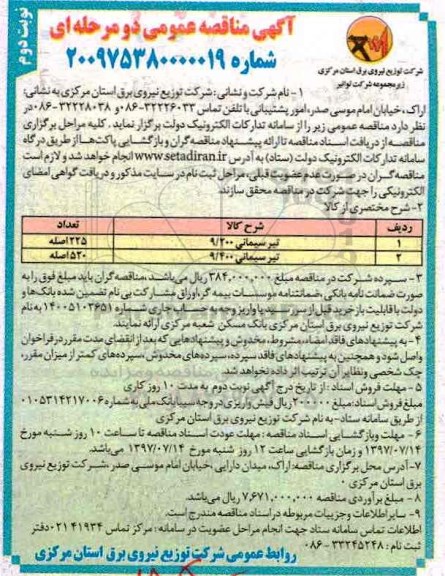 نوبت دوم
آگهی مناقصه عمومی دو مرحله ای
شماره ۲۰۰۹۷۵۳۸۰۰۰۰۰۱۹
شرکت توزیع نیروی برق استان مرکزی
زیرمجموعه شرکت توانیر
۱- نام شرکت و نشانی: شرکت توزیع نیروی برق استان مرکزی به نشانی:
اراک، خیابان امام موسی صدر، امور پشتیبانی با تلفن تماس ۳۲۲۲۶۰۳۳-۰۸۶ و ۳۲۲۲۸۰۳۸-۰۸۶ در
نظر دارد مناقصه عمومی زیر را از سامانه تدارکات الکترونیک دولت برگزار نماید. کلیه مراحل برگزاری
مناقصه از دریافت اسناد مناقصه تا ارائه پیشنهاد مناقصه گران و بازگشایی پاکت ها از طریق درگاه
سامانه تدارکات الکترونیک دولت (ستاد) به آدرس www.setadiran.ir انجام خواهد شد و لازم است
مناقصه گران در صورت عدم عضویت قبلی، مراحل ثبت نام در سایت مذکور و دریافت گواهی امضای
الکترونیکی را جهت شرکت در مناقصه محقق سازند.
۲- شرح مختصری از کالا
ردیف شرح کالا تعداد
۱ تیر سیمانی ۹/۲۰۰ ۲۲۵ اصله
۲ تیر سیمانی ۹/۴۰۰ ۵۲۰ اصله
۳- سپرده شرکت در مناقصه مبلغ ۳۸۴,۰۰۰,۰۰۰ ریال می باشد، مناقصه گران باید مبلغ فوق را به
صورت ضمانت نامه بانکی، ضمانتنامه موسسات بیمه گر، اوراق مشارکت بی نام تضمین شده بانک ها و
دولت با قابلیت باز خرید قبل از سررسید یا واریز وجه به حساب جاری شماره ۱۴۰۰۵۱۰۳۶۵۱ به نام
شرکت توزیع نیروی برق استان مرکزی بانک مسکن شعبه مرکزی ارائه نمایند.
۴- به پیشنهادهای فاقد امضاء، مشروط، مخدوش و پیشنهادهایی که بعد از انقضای مدت مقرر در فراخوان
واصل شود و همچنین به پیشنهادهای فاقد سپرده، سپرده های مخدوش، سپرده های کمتر از میزان مقرر،
چک شخصی و نظایر آن ترتیب اثر داده نخواهد شد.
۵- مهلت فروش اسناد: از تاریخ درج آگهی نوبت دوم به مدت ۱۰ روز کاری
مبلغ فروش اسناد: مبلغ ۲۰۰۰۰۰ ریال فیش واریزی در وجه سیبا بانک ملی به شماره ۰۱۰۵۳۱۴۲۱۷۰۰۶
از طریق سامانه ستاد- به نام شرکت توزیع نیروی برق استان مرکزی
۶- مهلت و بازگشایی اسناد مناقصه: مهلت عودت اسناد مناقصه تا ساعت ۱۰ روز شنبه مورخ
۱۳۹۷/۰۷/۱۴ و زمان بازگشایی ساعت ۱۲ روز شنبه مورخ ۱۳۹۷/۰۷/۱۴ می باشد.
۷- آدرس محل برگزاری مناقصه: اراک، میدان دارایی، خیابان امام موسی صدر، شرکت توزیع نیروی
برق استان مرکزی.
۸- مبلغ برآوردی مناقصه ۷,۶۷۱,۰۰۰,۰۰۰ ریال می باشد.
۹- سایر اطلاعات و جزییات مربوطه در اسناد مناقصه مندرج است.
اطلاعات تماس سامانه ستاد جهت انجام مراحل عضویت در سامانه: مرکز تماس ۴۱۹۳۴-۰۲۱ دفتر
ثبت نام: ۳۳۲۴۵۲۴۸-۰۸۶
روابط عمومی شرکت توزیع نیروی برق استان مرکزی